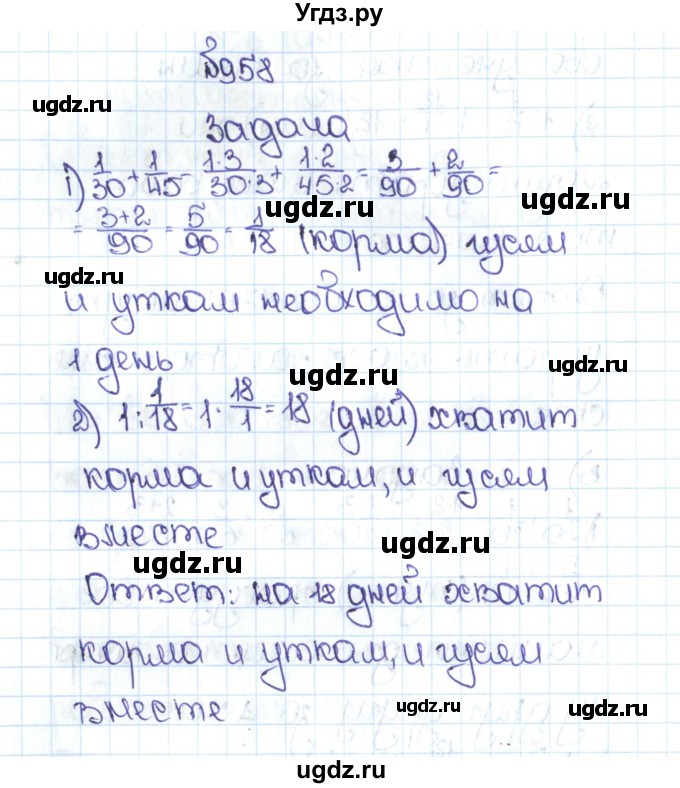 Угдз.ру
№958
ugdz.ru
ugdz.ru
Задача
1) 1/30 + 1/45 = 1·3/30·3 + 1·2/45·2 = 3/90 + 2/90 =
ugdz.ru
= 3+2/90 = 5/90 = 1/18 (корма) гусям
ugdz.ru
ugdz.ru
и уткам необходимо на
1 день
ugdz.ru
2) 1 : 1/18 = 1 · 18/1 = 18 (дней) хватит
корма и уткам, и гусям
вместе
ugdz.ru
ugdz.ru
Ответ: на 18 дней хватит
корма и уткам, и гусям
вместе
ugdz.ru
ugdz.ru
ugdz.ru